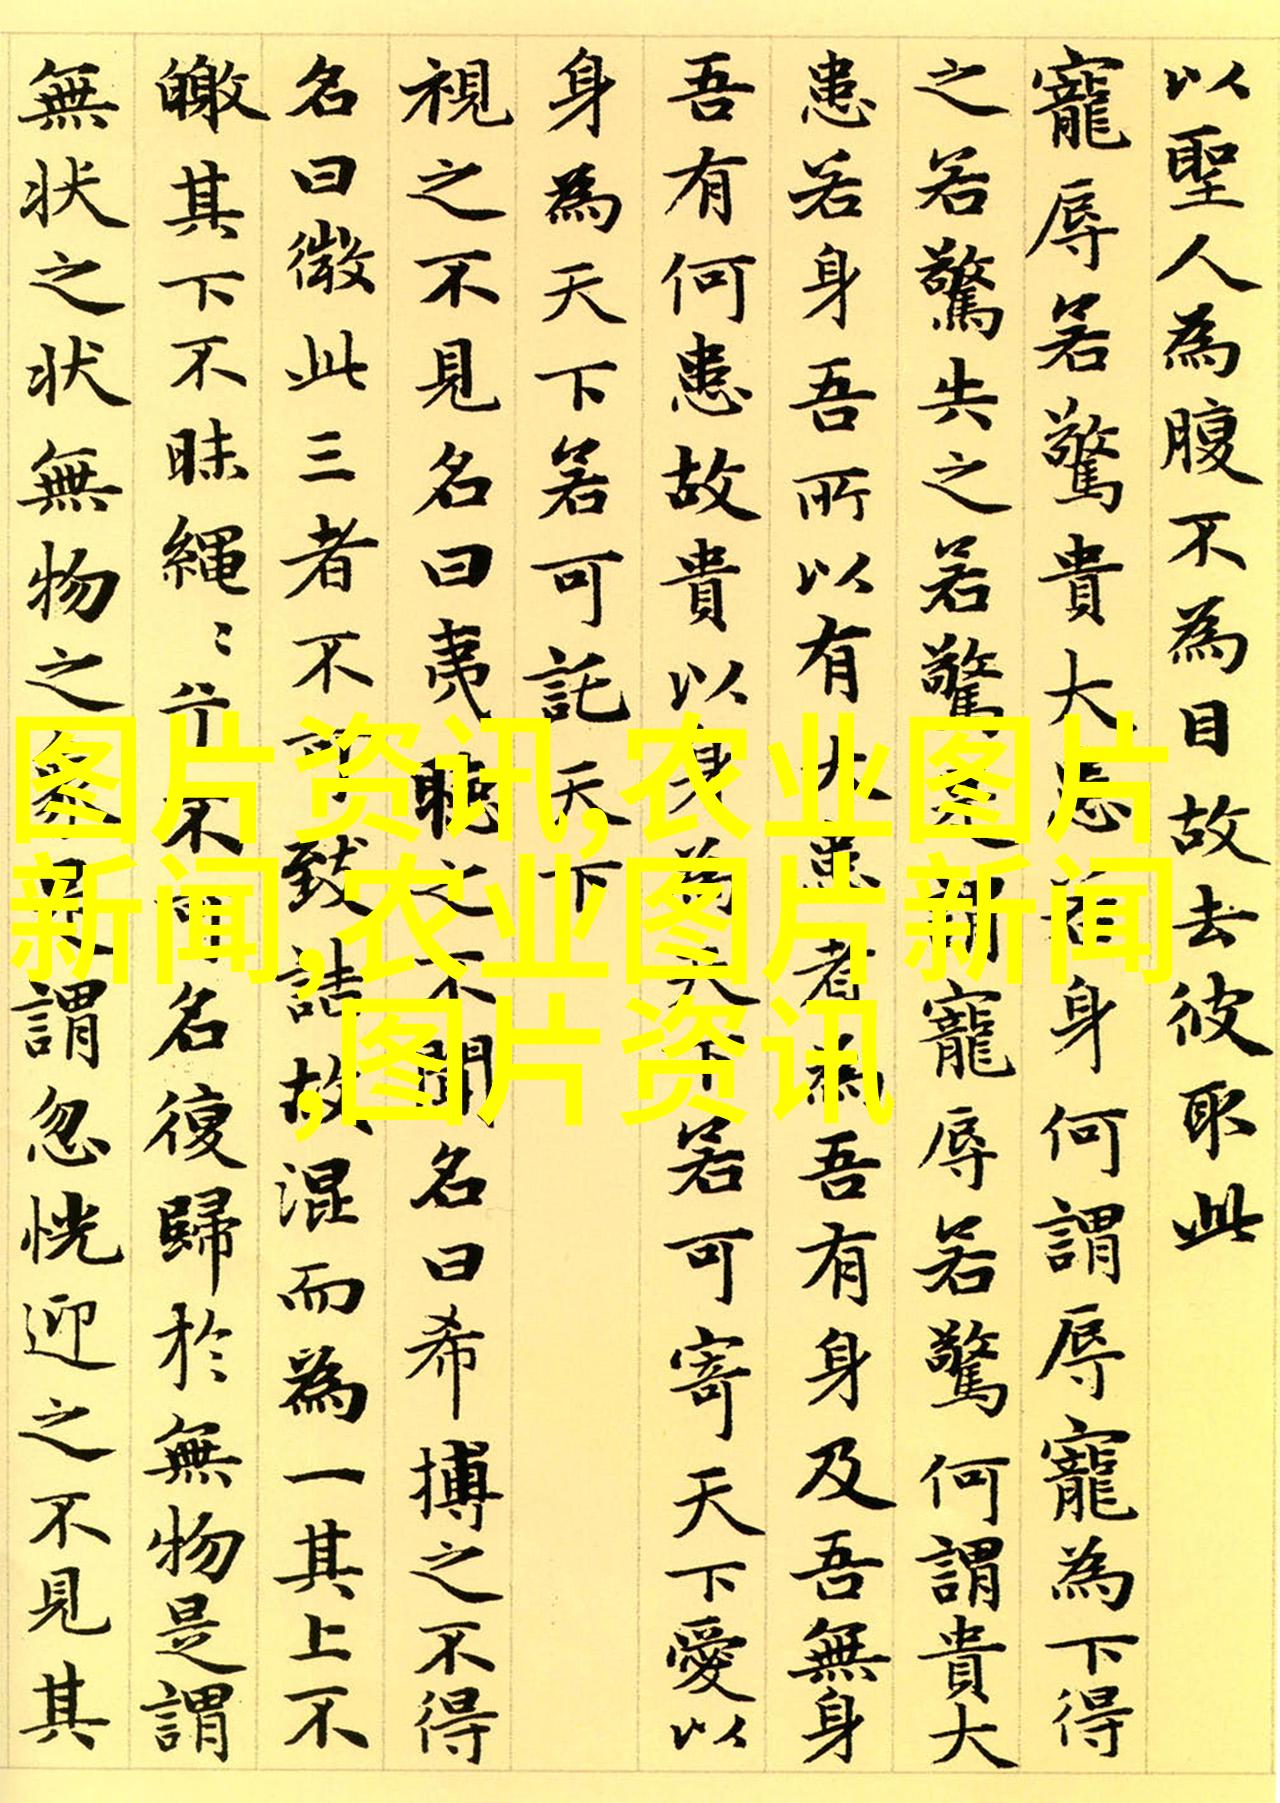 以聖人為腹不為目故去彼取此
寵辱若驚貴大患若身何謂辱寵為下得
之若驚失之若驚是謂寵辱若驚何謂貴大
患若身吾所以有大患者為吾有身及吾無身
吾有何患故貴以身為天下若可寄天下愛以
身為天下若可託天下
視之不見名曰夷聽之不聞名曰希搏之不得
名曰微此三者不可致詰故混而為一其上不
皦其下不昧繩〻兮不可名復歸於無物是謂
無状之状無物之象是謂忽恍迎之不見其
图片资讯,农业图片
新闻,农业图片新闻
,图片资讯